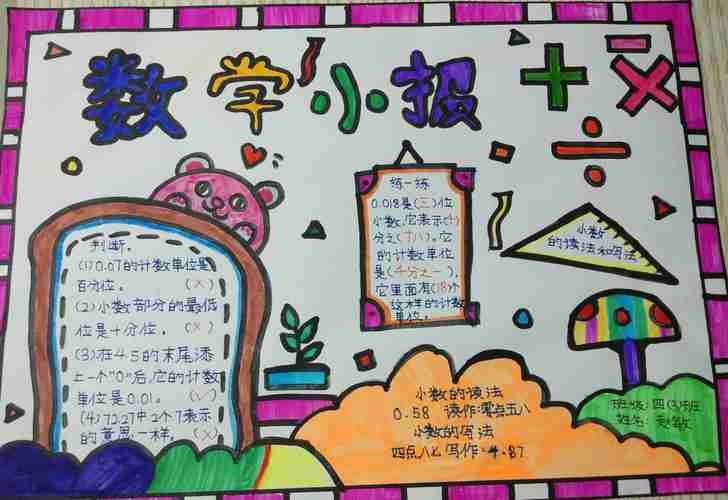 数学小报
判断。
(1)0.07的计数单位是
百分位。 (×)
(2)小数部分的最低
位是十分位。(×)
(3)在4.5的末尾添
上一个"0"后,它的计数
单位是0.01。 (√)
(4)72.27中2个7表示
的意思一样。 (×)
练一练
0.018是(三)位
小数,它表示(千)
分之(十八)。它
的计数单位
是(千分之一),
它里面有(18)个
这样的计数
单位。
小数
的读法和写法
小数的读法
0.58 读作:零点五八
小数的写法
四点八七 写作:4.87
班级:四(3)班
姓名: